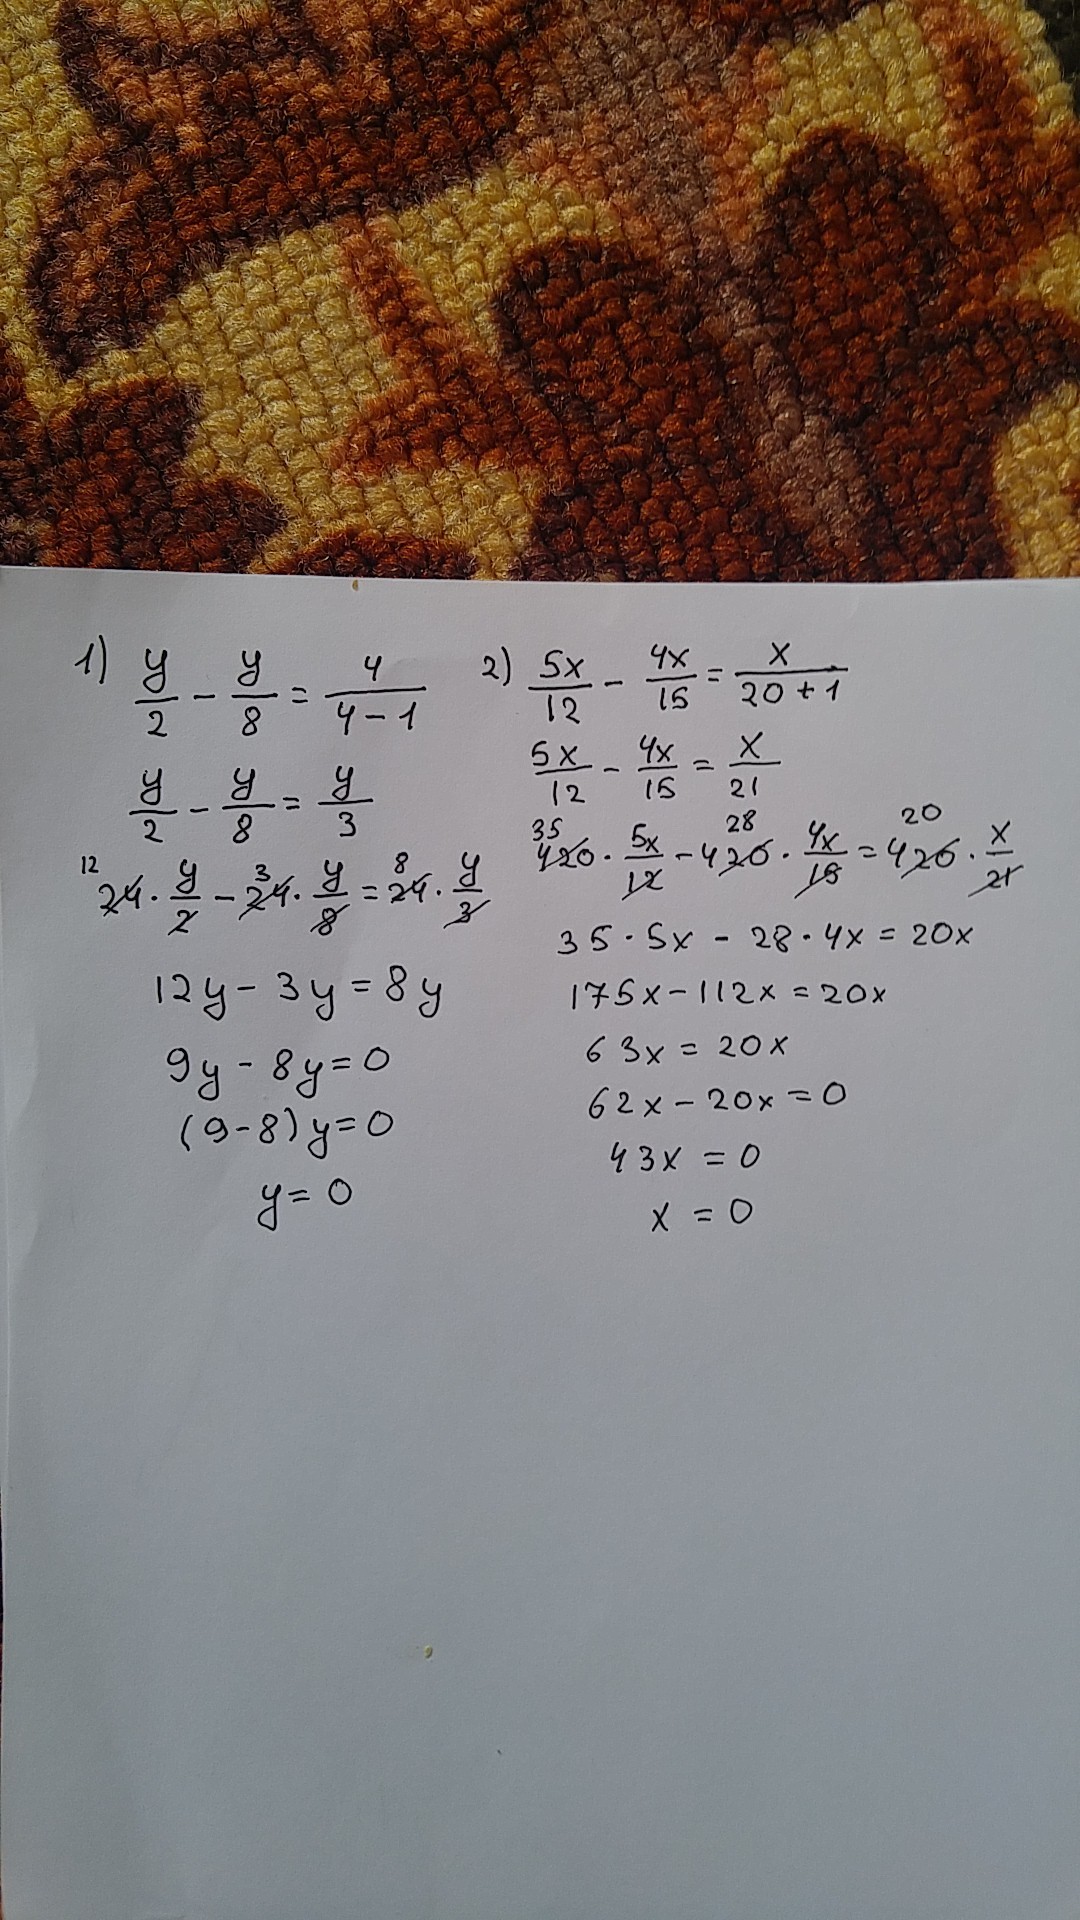 1) y/2 - y/8 = 4/(4-1)
y/2 - y/8 = y/3
12 24 · y/2 - 3 24 · y/8 = 8 24 · y/3
12y - 3y = 8y
9y - 8y = 0
(9-8)y = 0
y = 0
2) 5x/12 - 4x/15 = x/(20+1)
5x/12 - 4x/15 = x/21
35 420 · 5x/12 - 28 420 · 4x/15 = 20 420 · x/21
35 · 5x - 28 · 4x = 20x
175x - 112x = 20x
63x = 20x
62x - 20x = 0
43x = 0
x = 0